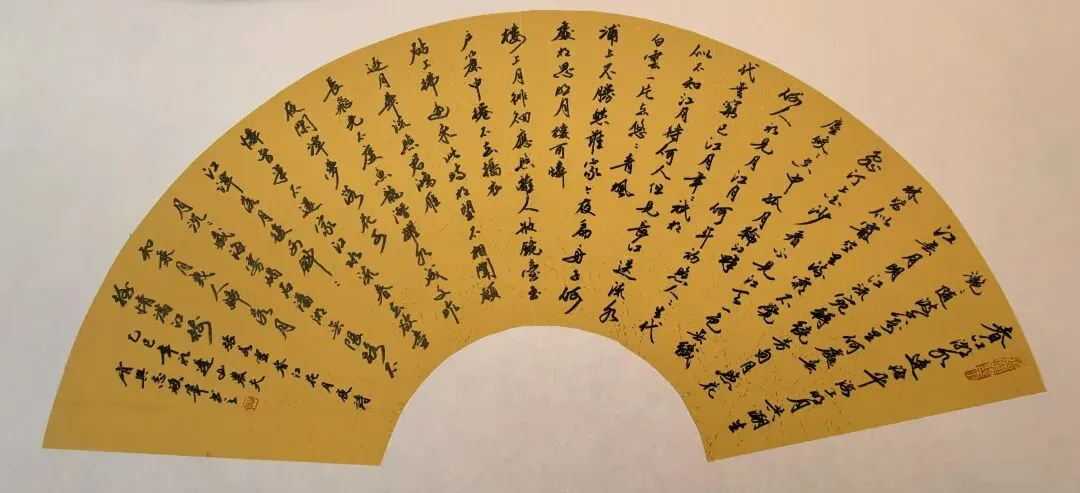 春江潮水連海平海上明月共潮生
灩灩隨波千萬里何處春
江無月明江流宛轉繞芳甸月照花
林皆似霰空里流霜不覺
飛汀上白沙看不見江天一色無纖
塵皎皎空中孤月輪江畔
何人初見月江月何年初照人人生代
代無窮已江月年年祇相
似不知江月待何人但見長江送流水
白雲一片去悠悠青楓
浦上不勝愁誰家今夜扁舟子何
處相思明月樓可憐
樓上月徘徊應照離人妝鏡臺玉
戶簾中捲不去搗衣
砧上拂還來此時相望不相聞願
逐月華流照君鴻雁
長飛光不度魚龍潛躍水成文昨
夜閑潭夢落花可
憐春半不還家江水流春去欲盡
江潭落月復西斜斜
月沉沉藏海霧碣石瀟湘無限路不
知乘月幾人歸落月
搖情滿江樹 張若虛春江花月夜詩
乙巳年初 農夫